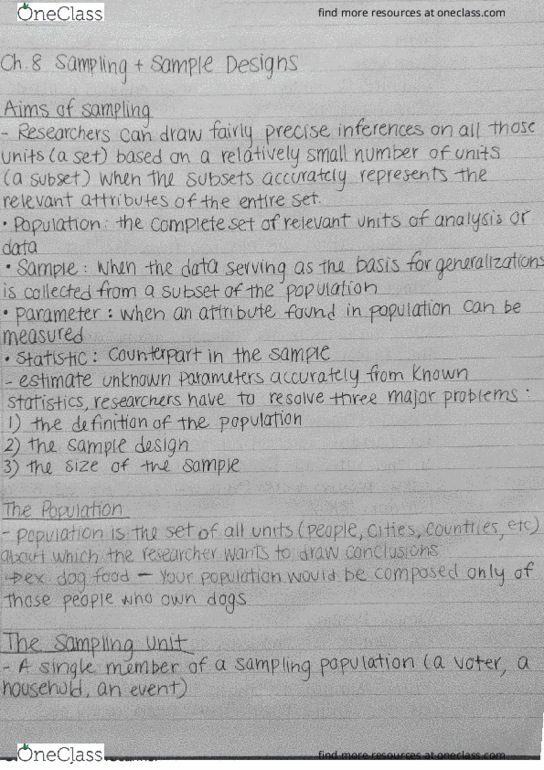 OneClass
find more resources at oneclass.com
Ch.8 Sampling + Sample Designs
Aims of sampling
- Researchers can draw fairly precise inferences on all those
units (a set) based on a relatively small number of units
(a subset) when the subsets accurately represents the
relevant attributes of the entire set.
• Population: the complete set of relevant units of analysis or
data
• Sample: when the data serving as the basis for generalizations
is collected from a subset of the population
• Parameter: when an attribute found in population can be
measured
• Statistic: Counterpart in the sample
- estimate unknown parameters accurately from known
statistics, researchers have to resolve three major problems:
1) the definition of the population
2) the sample design
3) the size of the sample
The Population
- population is the set of all units (people, cities, countries, etc)
about which the researcher wants to draw conclusions
→ ex. dog food - Your population would be composed only of
those people who own dogs
The Sampling Unit
- A single member of a sampling population (a voter, a
household, an event)
OneClass
find more resources at oneclass.com